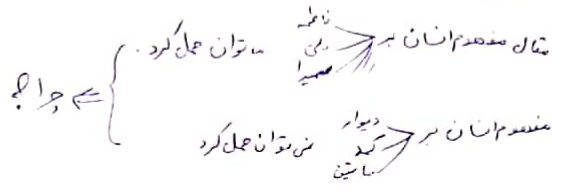 مثال مفهوم انسان بر فاطمه علی حمیرا می توان حمل کرد.
⇐ چرا؟
مفهوم انسان بر دیوار کمد ماشین نمی توان حمل کرد